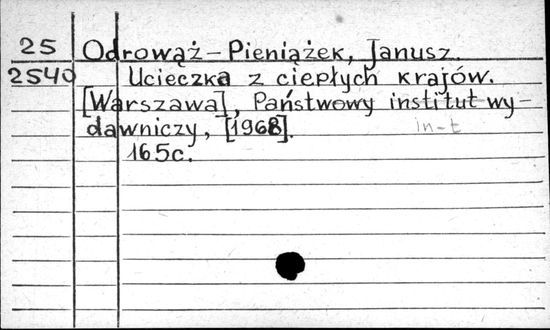 25 Odrowąż-Pieniążek, Janusz
2540 Ucieczka z ciepłych krajów.
[Warszawa], Państwowy institut wy-
dawniczy, [1968].
in-t
165c.